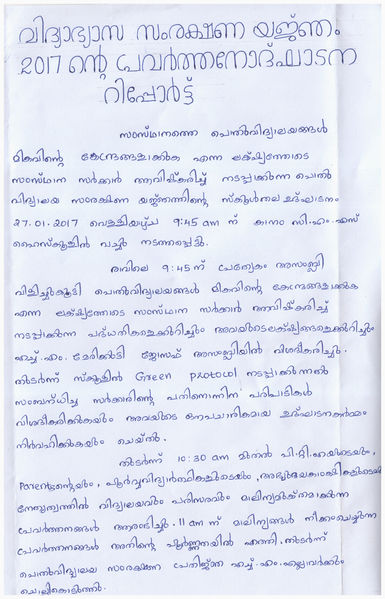 വിദ്യാഭ്യാസ സംരക്ഷണ യജ്ഞം
2017 ന്റെ പ്രവർത്തനോദ്ഘാടന
റിപ്പോർട്ട്
സംസ്ഥാനത്തെ പൊതുവിദ്യാലയങ്ങൾ
മികവിന്റെ കേന്ദ്രങ്ങളാക്കുക എന്ന ലക്ഷ്യത്തോടെ
സംസ്ഥാന സർക്കാർ ആവിഷ്കരിച്ച് നടപ്പാക്കുന്ന പൊതു
വിദ്യാലയ സംരക്ഷണ യജ്ഞത്തിന്റെ സ്കൂൾതല ഉദ്ഘാടനം
27.01.2017 വെള്ളിയാഴ്ച 9:45 am ന് കാനം സി.എം.എസ്
ഹൈസ്കൂളിൽ വച്ച് നടത്തപ്പെട്ടു.
രാവിലെ 9:45 ന് പ്രത്യേകം അസംബ്ലി
വിളിച്ചുകൂട്ടി പൊതുവിദ്യാലയങ്ങൾ മികവിന്റെ കേന്ദ്രങ്ങളാക്കുക
എന്ന ലക്ഷ്യത്തോടെ സംസ്ഥാന സർക്കാർ ആവിഷ്കരിച്ച്
നടപ്പാക്കുന്ന പദ്ധതികളെക്കുറിച്ചും അവയുടെ ലക്ഷ്യങ്ങളെക്കുറിച്ചും
എച്ച്.എം. മേരിക്കുട്ടി ജോസഫ് അസംബ്ലിയിൽ വിശദീകരിച്ചു.
തുടർന്ന് സ്കൂളിൽ Green Protocol നടപ്പാക്കുന്നതു
സംബന്ധിച്ച സർക്കാരിന്റെ പതിനൊന്നിന പരിപാടികൾ
വിശദീകരിക്കുകയും അവയുടെ ഔപചാരികമായ ഉദ്ഘാടനകർമ്മം
നിർവഹിക്കുകയും ചെയ്തു.
തുടർന്ന് 10:30 am മുതൽ പി.റ്റി.എയുടെയും,
Parents ന്റെയും, പൂർവ്വവിദ്യാർത്ഥികളുടെയും, അഭ്യുദയകാംക്ഷികളുടെയും
നേതൃത്വത്തിൽ വിദ്യാലയവും പരിസരവും മാലിന്യമുക്തമാക്കുന്ന
പ്രവർത്തനങ്ങൾ ആരംഭിച്ചു. 11 am ന് മാലിന്യങ്ങൾ നീക്കംചെയ്യുന്ന
പ്രവർത്തനങ്ങൾ അതിന്റെ പൂർണ്ണതയിൽ എത്തി. തുടർന്ന്
പൊതുവിദ്യാലയ സംരക്ഷണ പ്രതിജ്ഞ എച്ച്.എം. എല്ലാവർക്കും
ചൊല്ലികൊടുത്തു.